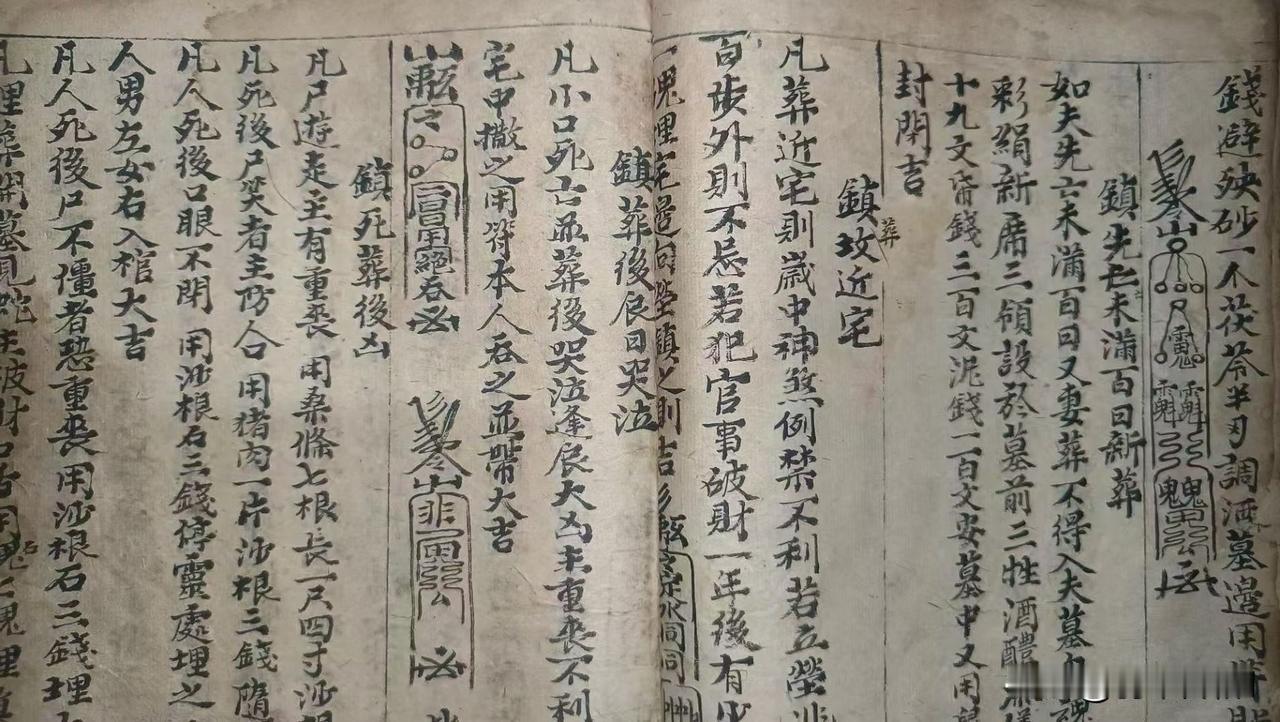 錢避殃砂一个茯苓半刃調洒墓邉用
鎮先亡未滿百日新葬
如夫先亡未滿百日又妻葬不得入夫墓
彩絹新席三領設於墓前三牲酒醴
十九文帋錢三百文泥錢一百文安墓中又用
封開吉
鎮坟近宅
葬
凡葬近宅則歲中神煞例禁不利若立塋
百步外則不忌若犯官事破財一年後有
塊埋宅邉向塋鎮之則吉
鎮葬後辰日哭泣
凡小口死亡並葬後哭泣逢辰大凶主重丧不利
宅中撒之用符本人吞之並帶大吉
鎮死葬後凶
凡尸遊走主有重丧用桑條七根長一尺四寸沙
凡死後尸笑者主防人口用猪肉一片沙根三錢隨
凡人死後口眼不閉用沙根石三錢停靈處埋之
人男左女右入棺大吉
凡人死後尸不僵者恐重丧用沙根石三錢埋
凡埋葬開墓見蛇主破財口舌用